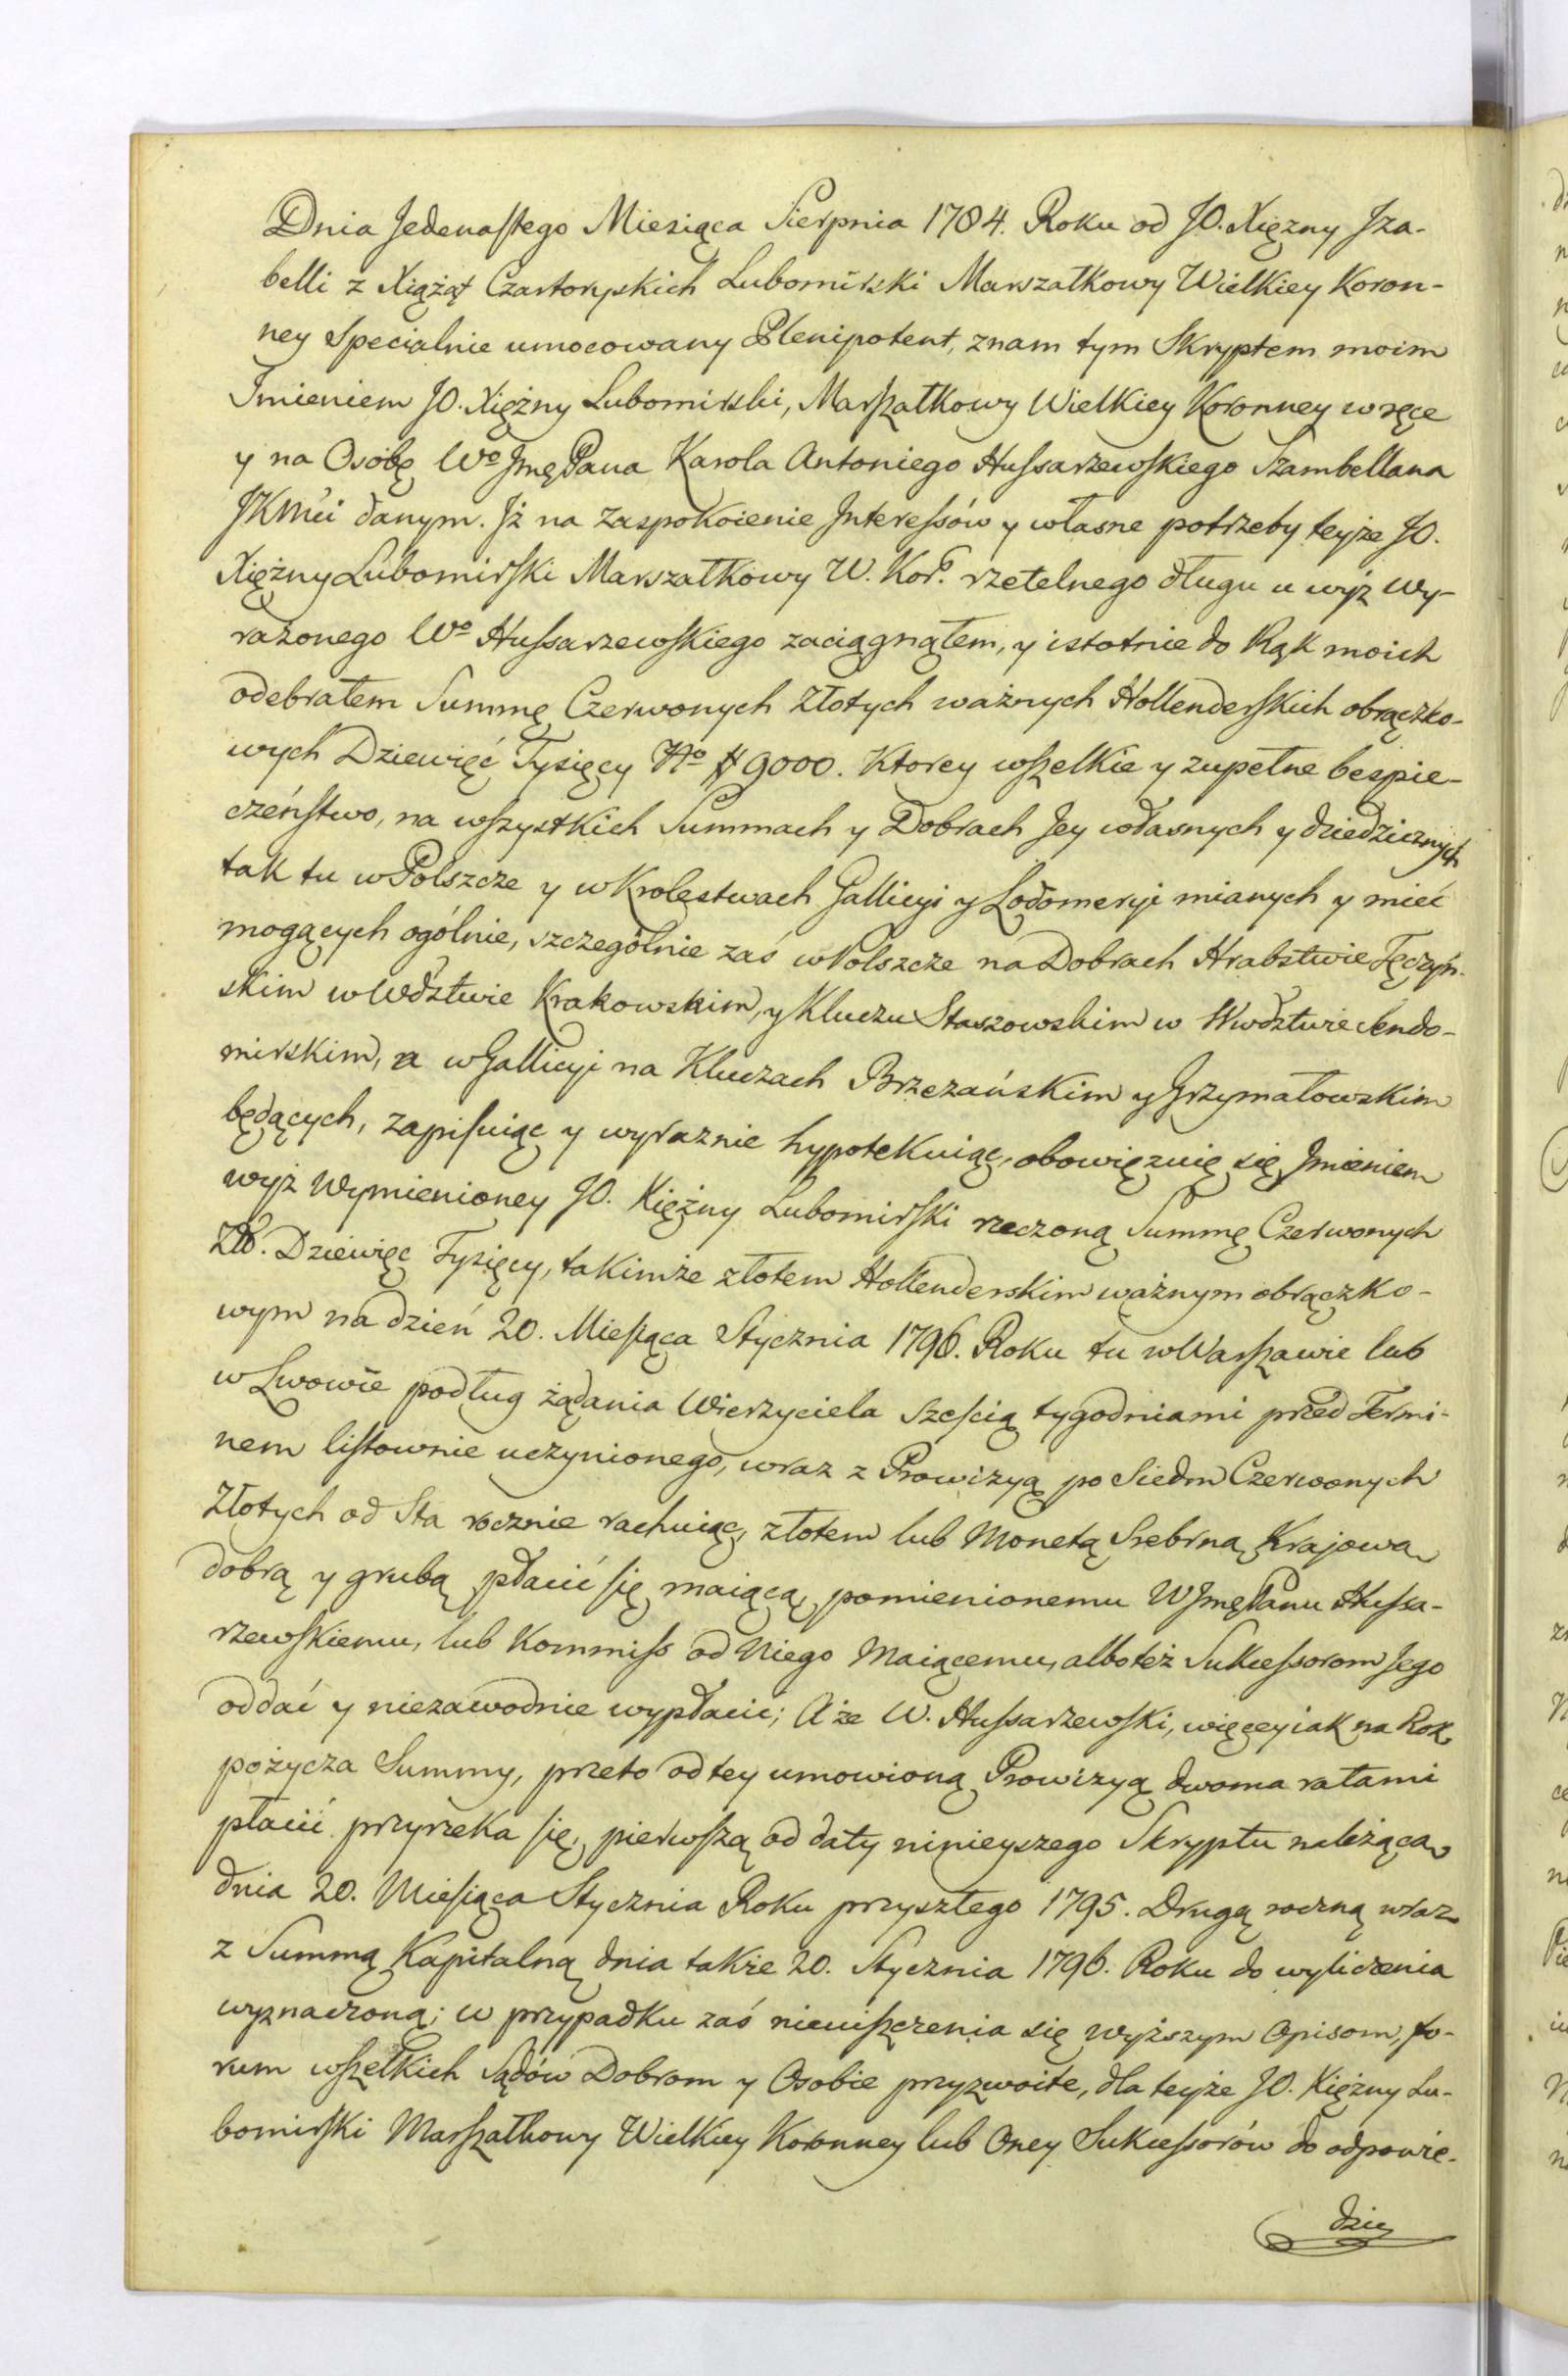 Dnia Jedenastego Miesiąca Sierpnia 1784. Roku od JO. Xięzny Jza-
belli z Xiąząt Czartoryskich Lubomirski Marszałkowy Wielkiey Koron-
ney specialnie umocowany Plenipotent, znam tym Skryptem moim
Jmieniem JO. Xiężny Lubomirski, Marszałkowy Wielkiey Koronney w ręce
y na Osobę Wo Jmę Pana Karola Antoniego Hussarzewskiego Szambellana
JKMci danym. Jż na zaspokoienie Jnteressów y własne potrzeby teyże JO.
Xiężny Lubomirski Marszałkowy W. Kor. rzetelnego długu u wyż wy-
rażonego Wo Hussarzewskiego zaciągnąłem, y istotnie do Rąk moich
odebrałem Summę Czerwonych Złotych ważnych Hollenderskich obrączko-
wych Dziewięć Tysięcy No # 9000. Ktorey wszelkie y zupełne bespie-
czeństwo, na wszystkich Summach y Dobrach Jey własnych y dziedzicznych
tak tu w Polszcze y w Krolestwach Gallicyi y Lodomeryi mianych y mieć
mogących ogólnie, szczególnie zaś w Polszcze na Dobrach Hrabstwie Tęczyń-
skim w Wdztwie Krakowskim, y Kluczu Staszowskim w Wwdztwie Sendo-
mirskim, a w Gallicyi na Kluczach Brzezańskim y Grzymałowskim
będących, zapisuiąc y wyraznie hypotekuiąc, obowięzuię się Jmieniem
wyż wymienioney JO. Xiężny Lubomirski rzeczoną Summę Czerwonych
Zł. Dziewięc Tysięcy, takimże złotem Hollenderskim ważnym obrączko-
wym na dzień 20. Miesiąca Stycznia 1796. Roku tu w Warszawie lub
w Lwowie podług żądania Wierzyciela sześcią tygodniami przed Termi-
nem listownie uczynionego, wraz z Prowizyą po Siedm Czerwonych
Złotych od Sta rocznie rachuiąc, złotem lub Monetą Srebrną Krajową
dobrą y grubą płacić się maiącą, pomienionemu WJmę Panu Hussa-
rzewskiemu, lub Kommiss od Niego Maiącemu, albo też Sukcessorom Jego
oddać y niezawodnie wypłacić; A że W. Hussarzewski, więcey iak na Rok
pożycza Summy, przeto od tey umowioną Prowizyą dwoma ratami
płacić przyrzeka się, pierwszą od daty ninieyszego Skryptu należącą
dnia 20. Miesiąca Stycznia Roku przyszłego 1795. Drugą roczną wraz
z Summą Kapitalną dnia także 20. Stycznia 1796. Roku do wyliczenia
wyznaczoną; w przypadku zaś nieuiszczenia się wyższym Opisom, fo-
rum wszelkich Sądów Dobrom y Osobie przyzwoite, dla teyże JO. Xiężny Lu-
bomirski Marszałkowy Wielkiey Koronney lub Oney Sukcessorów do odpowie-
dzi